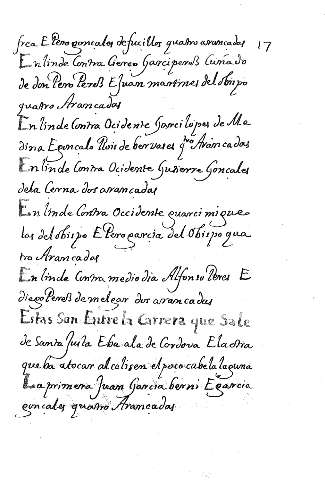 frea E Pero gonçales de fucillos quatro arancadas 17
En linde Contra Cierco Garci pereß Cuñado
de don Pero Pereß E Juan martines del obispo
quatro Arancadas
En linde Contra Ocidente Garci lopes de Me
dina E gonçalo Rois de bervases qtro Arancadas
En linde Contra Ocidente Gutierre Gonçales
de la Cerna dos arancadas
En linde Contra Occidente guarci migue
los del obispo E Pero garcia del Obispo qua
tro Arancadas
En linde Contra medio dia Alfonso Peres E
diego Pereß de melgar dos arancadas
Estas Son Entre la Carrera que Sale
de Santa Justa E ba ala de Cordova E la otra
que ba atocar al calisen el poco cabe la laguna
La primera Juan Garcia berni E garcia
gonçales quatro Arancadas